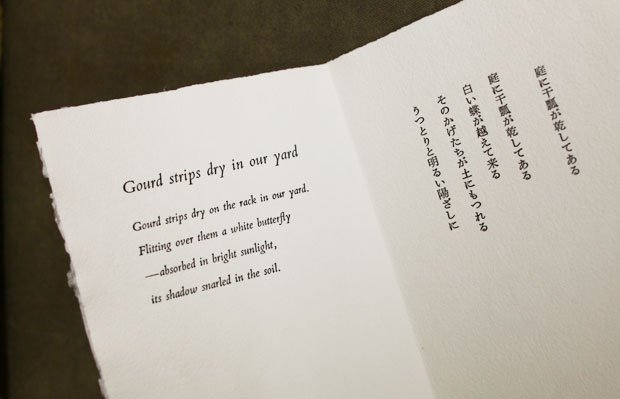 Gourd strips dry in our yard
Gourd strips dry on the rack in our yard.
Flitting over them a white butterfly
—absorbed in bright sunlight,
its shadow snarled in the soil.
庭に干瓢が乾してある
庭に干瓢が乾してある
白い蝶が越えて来る
そのかげたちが土にもつれる
うつとりと明るい陽ざしに